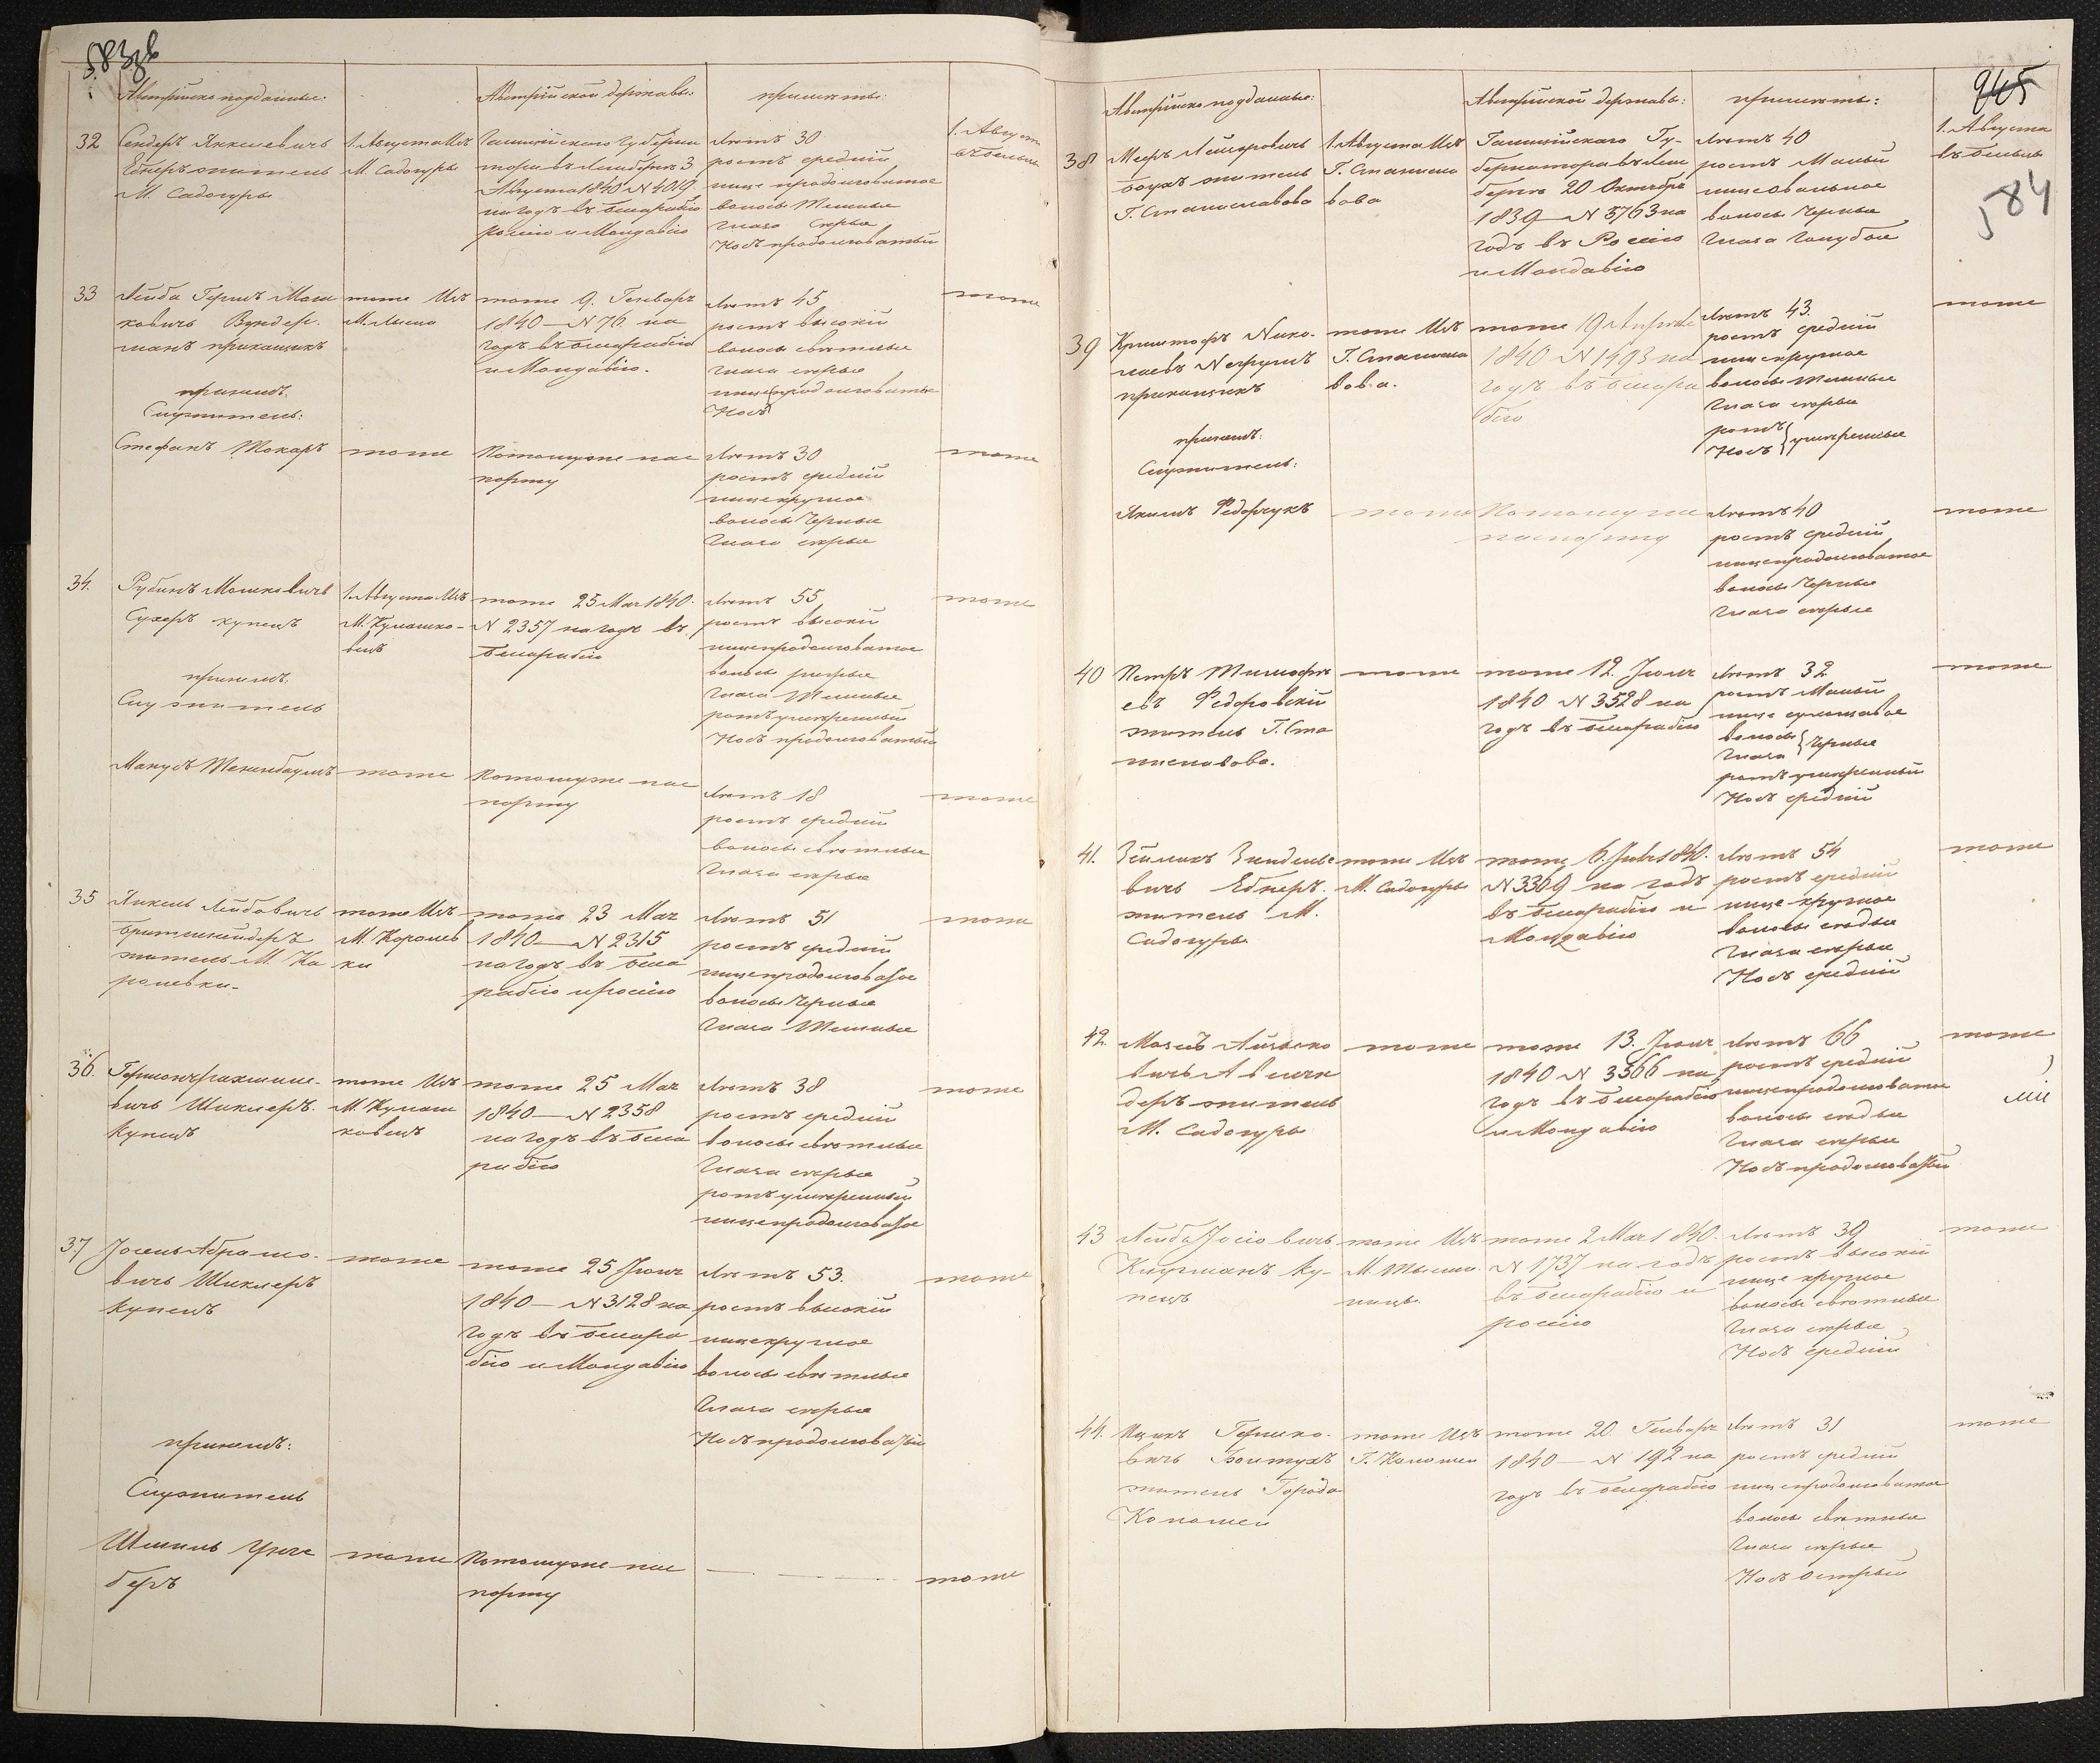 583 об
Австрийско подданные:
Австрийской державы:
приметы:
32
Сендеръ Янкелевичъ
Ебнеръ житель
М. Садогуры
1. Августа Изъ
М. Садогуры
Галицийскаго Губерна
тора въ Лемберге 3
Августа 1840 N 4019
на годъ въ Бесарабiю
Россiю и Молдавiю
Лѣтъ 30
ростъ среднiй
лице продолговатое
волосы Темные
Глаза Серые
Носъ продолговатый
1. Августа
въ Бельцы
33
Лейба Гершъ Мош
ковичъ Вундер-
манъ прикащикъ
принемъ
Служитель:
тоже Изъ
М. Лысца
тоже 9. Генваря
1840 — N 76 на
годъ въ Бесарабiю
и Молдавiю.
Лѣтъ 45
ростъ высокiй
волосы свѣтлые
глаза серые
лице продолговатые
Носъ
тоже
Стефанъ Токаръ
тоже
Потомуже пас
порту
Лѣтъ 30
ростъ среднiй
лице круглое
волосы Черные
Глаза серые
тоже
34.
Рубинъ Мошковичъ
Сухеръ купецъ
принемъ
Служитель
1. Августа Изъ
М. Кулашко-
вецъ
тоже 25 Мая 1840.
N 2357 на годъ въ
Бесарабiю
Лѣтъ 55
ростъ высокiй
лице продолговатое
волосы рыжые
глаза Темные
ротъ умѣренный
Носъ продолговатый
тоже
Манусъ Тененбаумъ
тоже
Потомуже пас
порту
Лѣтъ 18
ростъ среднiй
волосы свѣтлые
Глаза серые
тоже
35
Янкель Лейбовичъ
житель М. Ка
ролевки
тоже Изъ
М. Королев
ки
тоже 23 Мая
1840 — N 2315
на годъ въ Беса
рабiю и Россiю
Лѣтъ 51
ростъ среднiй
лице продолговатое
волосы Черные
Глаза Темные
тоже
36.
вичъ Шиклеръ
Купецъ
тоже Изъ
М. Кулаш
ковецъ
тоже 25 Мая
1840 — N 2358
на годъ въ Беса
рабiю
Лѣтъ 38
ростъ среднiй
волосы свѣтлые
Глаза серые
ротъ умѣренный
лице продолговатое
тоже
37
Iосель Абрамо-
вичъ Шиклеръ
Купецъ
принемъ:
Служитель
тоже
тоже 25 Iюня
1840 — N 3128 на
годъ въ Бесара
бiю и Молдавiю
Лѣтъ 53.
ростъ высокiй
лице круглое
волосы свѣтлые
Глаза серые
Носъ продолговатый
тоже
Шмиль Унге
беръ
тоже
Потомуже пас
порту
тоже
945
584
Австрийско подданные:
Австрийской державы:
приметы:
38
Мееръ Лейзеровичъ
Баухъ житель
Г. Станиславова
1. Августа Изъ
Г. Станисла
вова
Галицийскаго Гу-
бернатора въ Лем
берге 20 Октября
1839 — N 5763 на
годъ въ Россiю
и Молдавiю
Лѣтъ 40
ростъ Малый
лице овальное
волосы Черные
Глаза Голубые
1. Августа
въ Бельцы
39
Криштофъ Нико-
лаевъ
прикащикъ
принемъ:
Служитель:
тоже Изъ
Г. Станисла
вова.
тоже 19 Апреля
1840 N 1493 на
годъ въ Бесара
бiю
Лѣтъ 43.
ростъ среднiй
лице круглое
волосы темные
Глаза серые
ротъ
Носъ умѣренные
тоже
Якимъ Федорчукъ
тоже
Потомуже
паспорту
Лѣтъ 40
ростъ среднiй
лице продолговатое
волосы Черные
Глаза серые
тоже
40
Петръ Тимофе
евъ Федоровскiй
житель Г. Ста
ниславова.
тоже
тоже 12. Iюля
1840 N 3528 на
годъ въ Бесарабiю
Лѣтъ 32
ростъ Малый
лице сухощавое
волосы
Глаза Черные
ротъ умѣренный
Носъ среднiй
тоже
41.
Зейликъ Зинделе
вичъ Ебнеръ.
житель М.
Садогуры
тоже Изъ
М. Садогуры
тоже 6. Iюля 1840.
N 3369 на годъ
въ Бесарабiю и
Молдавiю
Лѣтъ 54
ростъ среднiй
лице круглое
волосы седые
Глаза серые
Носъ среднiй
тоже
42.
житель
М. Садогуры
тоже
тоже 13. Iюля
1840 N 3566 на
годъ въ Бесарабiю
и Молдавiю
Лѣтъ 66
ростъ среднiй
лице продолговатое
волосы седые
Глаза серые
Носъ продолговатый
тоже
43
Лейба Iосiовичъ
Клугманъ Ку-
пецъ
тоже Изъ
М. Тысме-
ницы
тоже 2 Мая 1840.
N 1737 на годъ
въ Бесарабiю и
Россiю
Лѣтъ 39
ростъ высокiй
лице круглое
волосы свѣтлые
Глаза серые
Носъ среднiй
тоже
44.
Ицикъ Гершко-
вичъ Болтухъ
житель Города
Коломеи
тоже Изъ
Г. Коломеи
тоже 20. Генваря
1840 — N 192 на
годъ въ Бесарабiю
Лѣтъ 31
ростъ среднiй
лице продолговатое
волосы свѣтлые
Глаза серые
Носъ острый
тоже